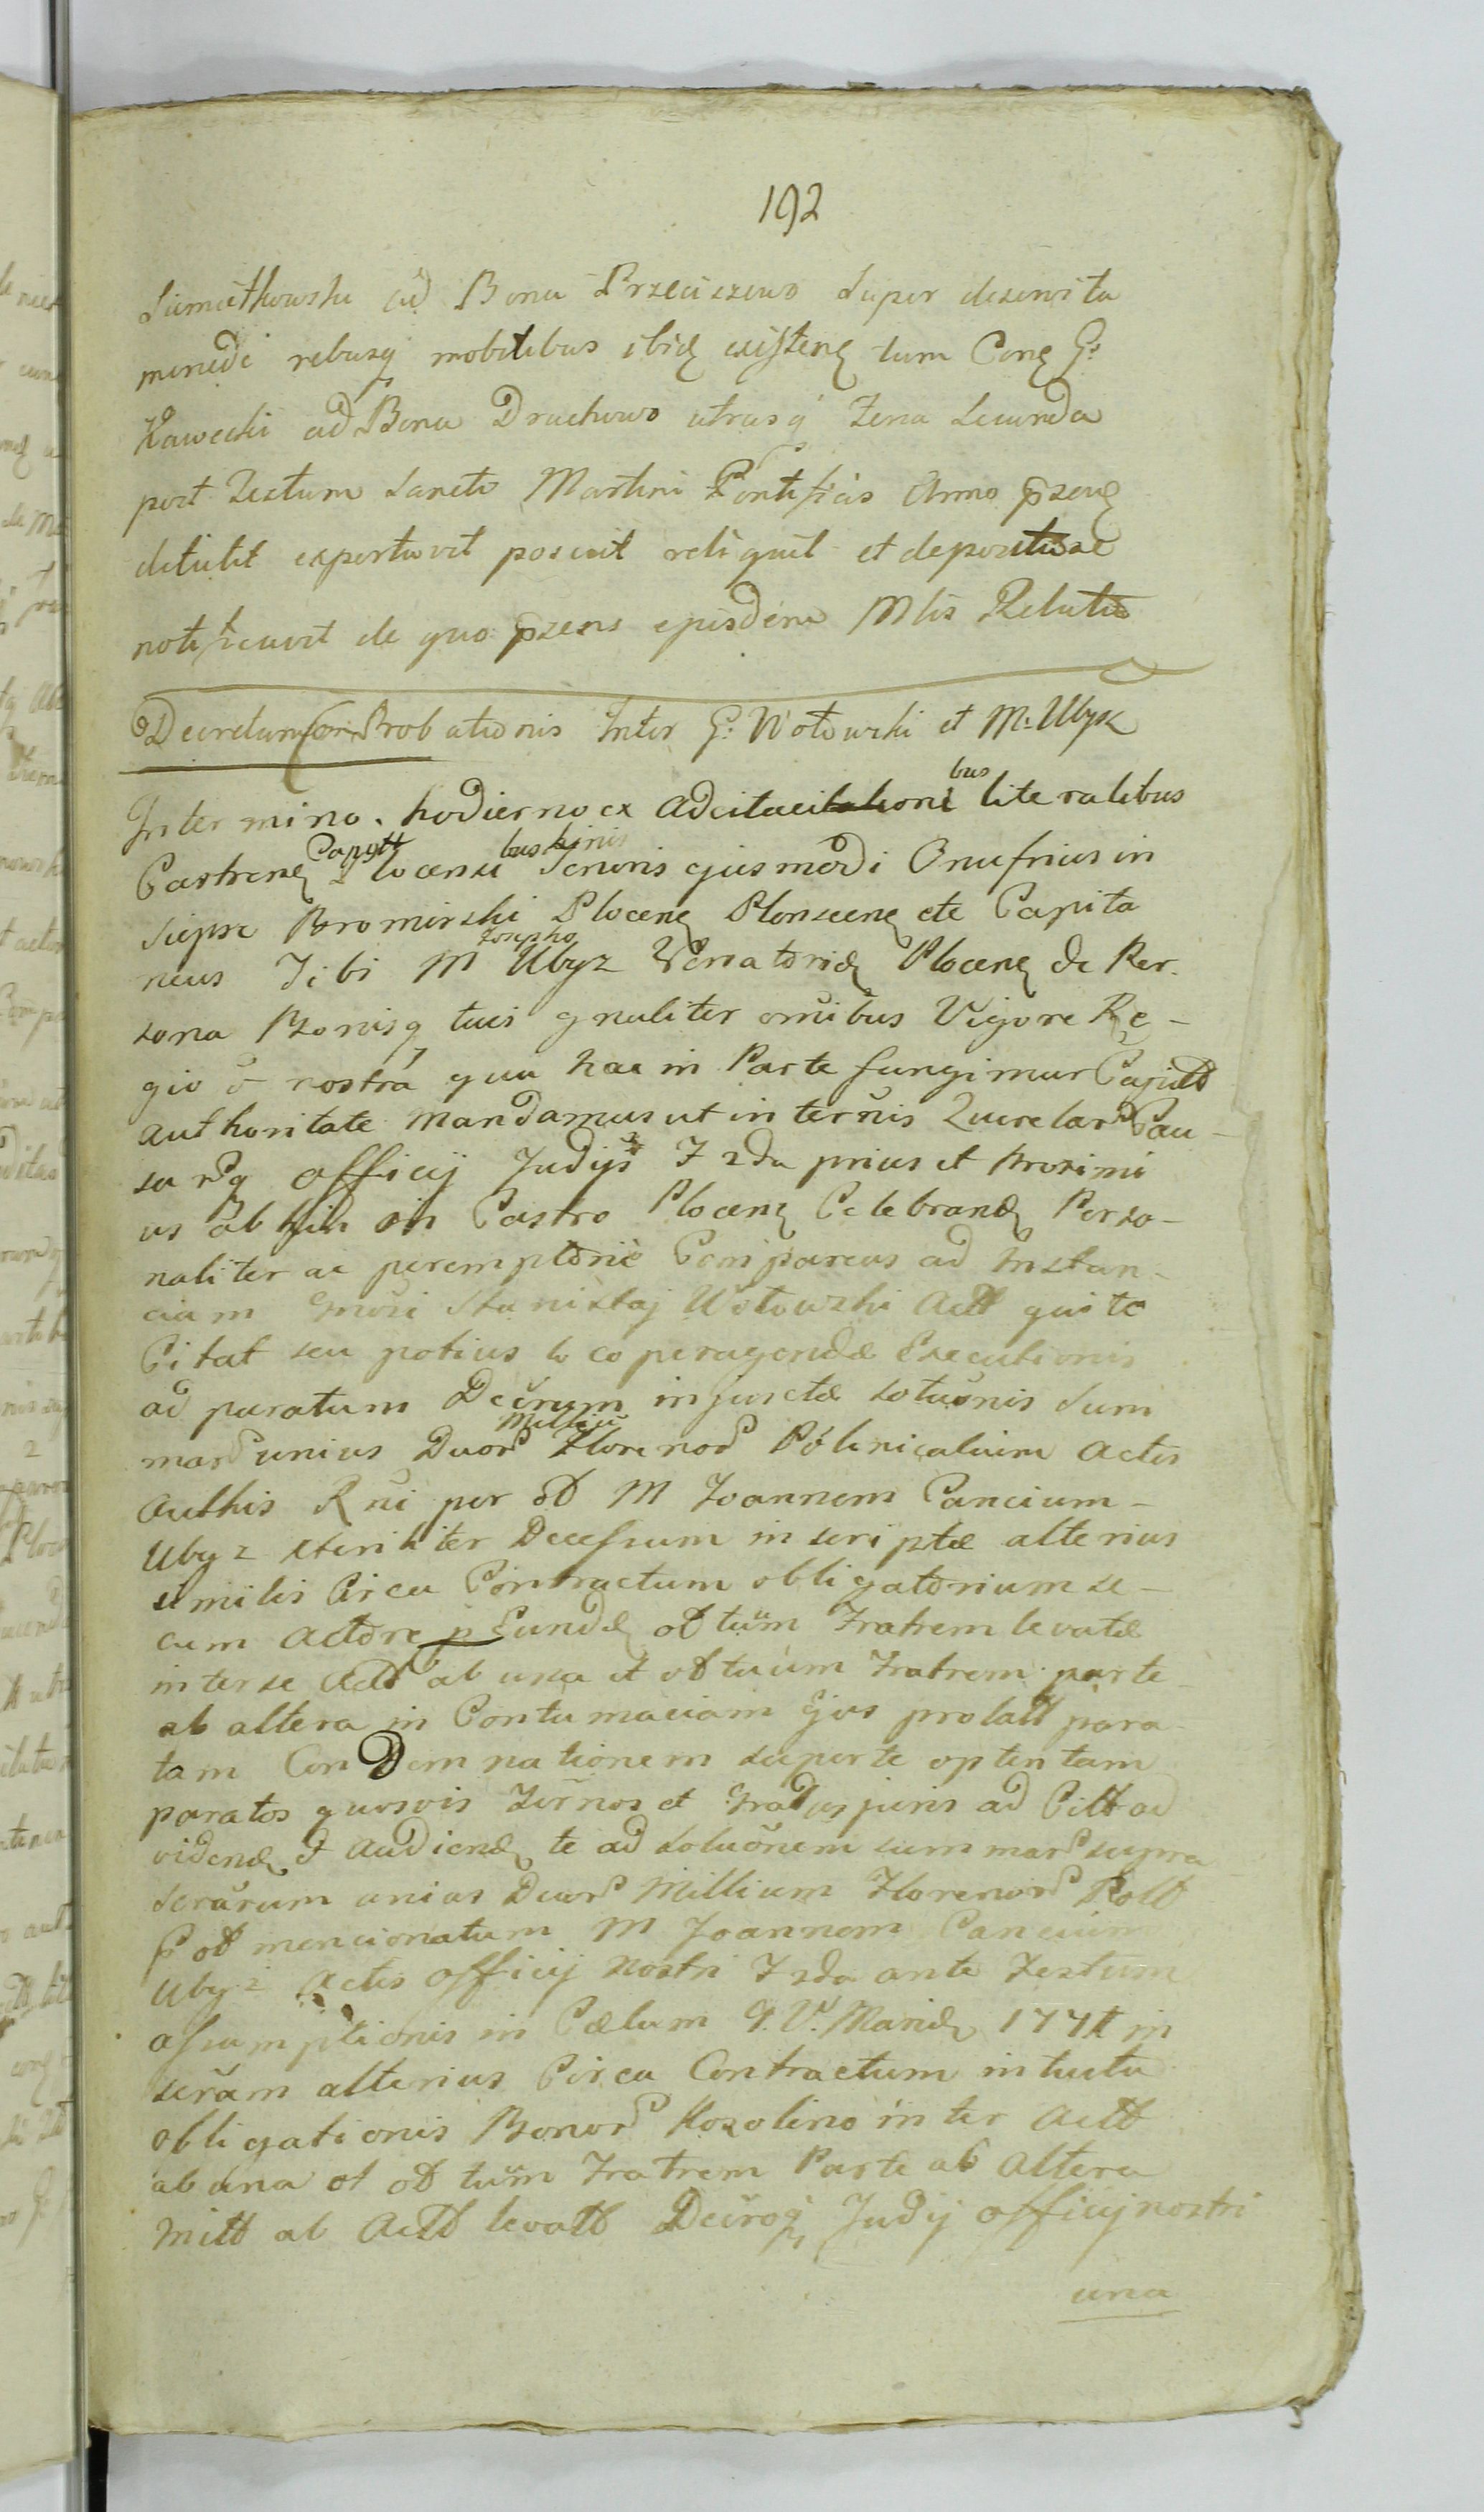 192
ad Bona Przeciszewo super deservita
rebusq mobilibus ibid existenę tum Conę G:
Kawecki ad Bona Drachowo utrasq Feria Secunda
post Festum Sancti Martini Pontificis Anno pzenę
detulit exportavit posuit reliquit et depositas se
notificavit de quo pzens ejusdem Mlis Relatio
Decretum Probationis Inter G: Wołowski et M. Ubysz
In termino hodierno ex literalibus
bus
Castrenę Capytt Plocensi Tenoris ejusmodi Onufrius in
Siepre Bromirski Plocenę Plonscenę etc Capita
neus Tibi M Josepho Ubyz Venatoridę Plocenę de Per
sona Bonisq tuis gnaliter omibus Vigore Re-
gio & nostra qua hac in Parte fungimur Capittt
Authoritate Mandamus ut in ternis Querelar Cau-
sarq officij Judijs F 2da prius et Proximi
us ab hin in Castro Plocenę Celebrandę Perso-
naliter ac peremptorie Compareas ad Instan-
ciam Gnosi Stanislaj Wołowski Actt qui te
Citat seu potius loco peragendæ Executionis
ad paratum Decrum injunctæ solutionis Sum
mar unius Duor Millium Florenor Polonicalium Actis
Authis Rni per ott M Joannem Cancium-
Ubyz steriliter Decessum inscriptæ alterius
similis Circa Contractum obligatorium se-
cum Actore p Eundę ott tuum Fratrem levatæ
inter se Actt ab una et ott tuum Fratrem parte
ab altera in Contumaciam Ejus prolatt para-
tam Condemnationem super te optentam
paratos quosvis Ternos et Gradus juris ad Citt ad
videndę & audiendę te ad solutionem summar supra
scrarum unias Duor Millium Florenor Poltt
p ott mencionatum M Joannem Cancium
Ubyz Actis officij nostri F 2da ante Festum
Assumptionis in Cælum G. V. Maridę in
scram alterius Circa Contractum intuitu
obligationis Bonor Kozolino inter Actt
ab una et ott tuum Fratrem Parte ab altera
Mitt ab Actt levatt Decroq Judij officij nostri
una